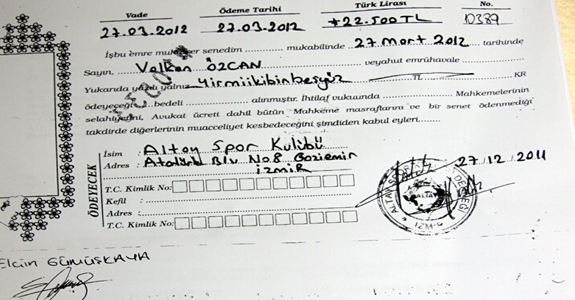 Vade Ödeme Tarihi Türk Lirası No.
27.03.2012 27.03.2012 #22.500TL 10389
İşbu emre muharrer senedim mukabilinde 27 mart 2012 tarihinde
Sayın, Volkan ÖZCAN veyahut emrühavale
Yukarıda yazılı yalnız Yirmiikibinbeşyüz TL KR
ödeyeceğ bedeli alınmıştır. İhtilaf vukuunda Mahkemelerinin
selahiyetini, Avukat ücreti dahil bütün Mahkeme masraflarını ve bir senet ödenmediği
takdirde diğerlerinin muacceliyet kesbedeceğini şimdiden kabul eyleri
ÖDEYECEK
İsim : Altay Spor Kulübü
Adres : Atatürk Blv No.8 Gaziemir
İZMİR
27.12.2011
T.C. Kimlik No:
Kefil :
Adres :
T.C. Kimlik No:
Elcin GÜMÜŞKAYA